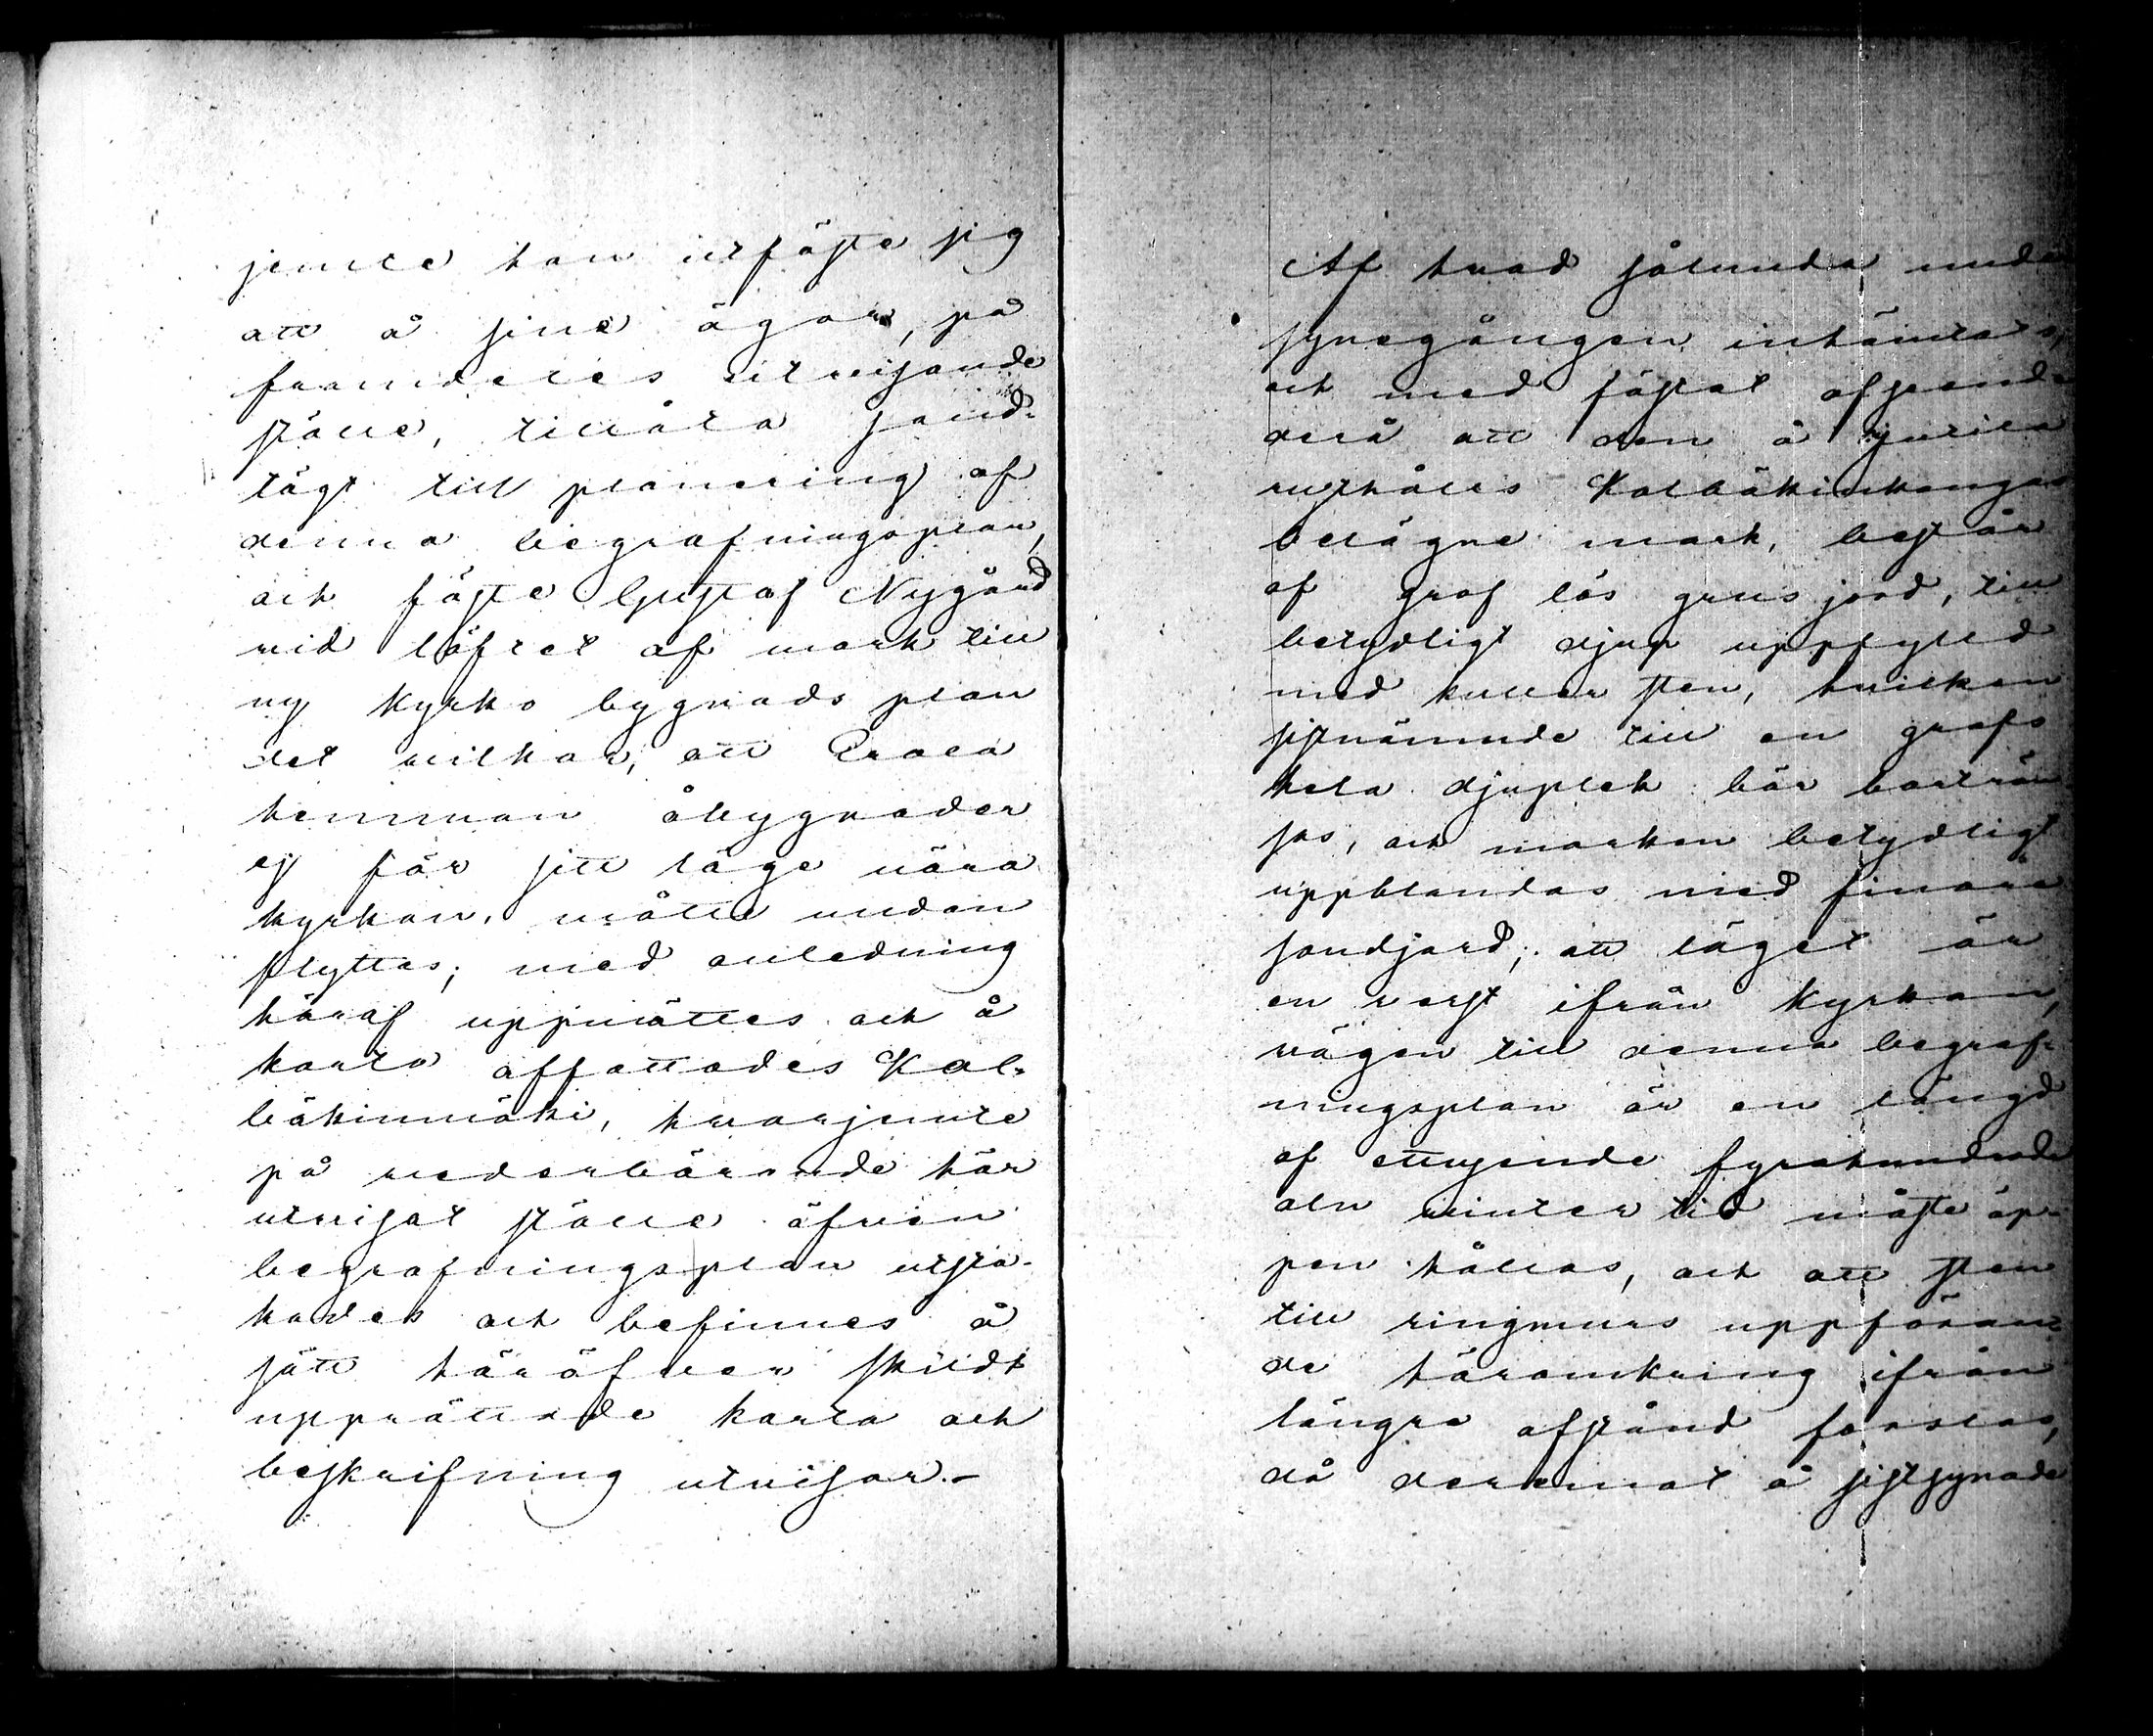 jemte han utfäste sig
att å sine ägor, på
framdeles utvisande
ställe, tillåta sand-
tägt till planering af
denna begrafningsplan,
och fäste Gustaf Nygård
vid löftet af mark till
ny kyrko bygnads plan
det vilkor, att
hemman åbygnader
ej för sitt läge nära
kyrkan, måtte undan
flyttas; med anledning
häraf uppmättes och å
karta affattades Kal-
bäkinmäki, hvarjemte
på vederbörande här
utvisat ställe äfven
begrafningsplan utsta-
kades och befinnes å
sätt häröfver skildt
upprättade karta och
beskrifning utvisar.-
Af hvad sålunda under
synegången inhämtats,
och med fästat afseende
derå att den å
rusthålls Kalbäkinkangas
belägne mark, består
af graf lös grus jord, till
betydligt djup uppfylld
med kuller sten, hvilken
sistnämnde till en grafs
hela djuplek bör borttrán
sas, och marken betydligt
uppblandas med finare
sandjord; att läget är
en verst ifrån kyrkan,
vägen till denna begraf-
ningsplan är en längd
af ettusende fyrahundrade
aln vinter tid måste öp-
pen hållas, och att sten
till ringmurs uppföran-
de häromkring ifrån
längre afstånd forslas,
då deremot å sistsynade